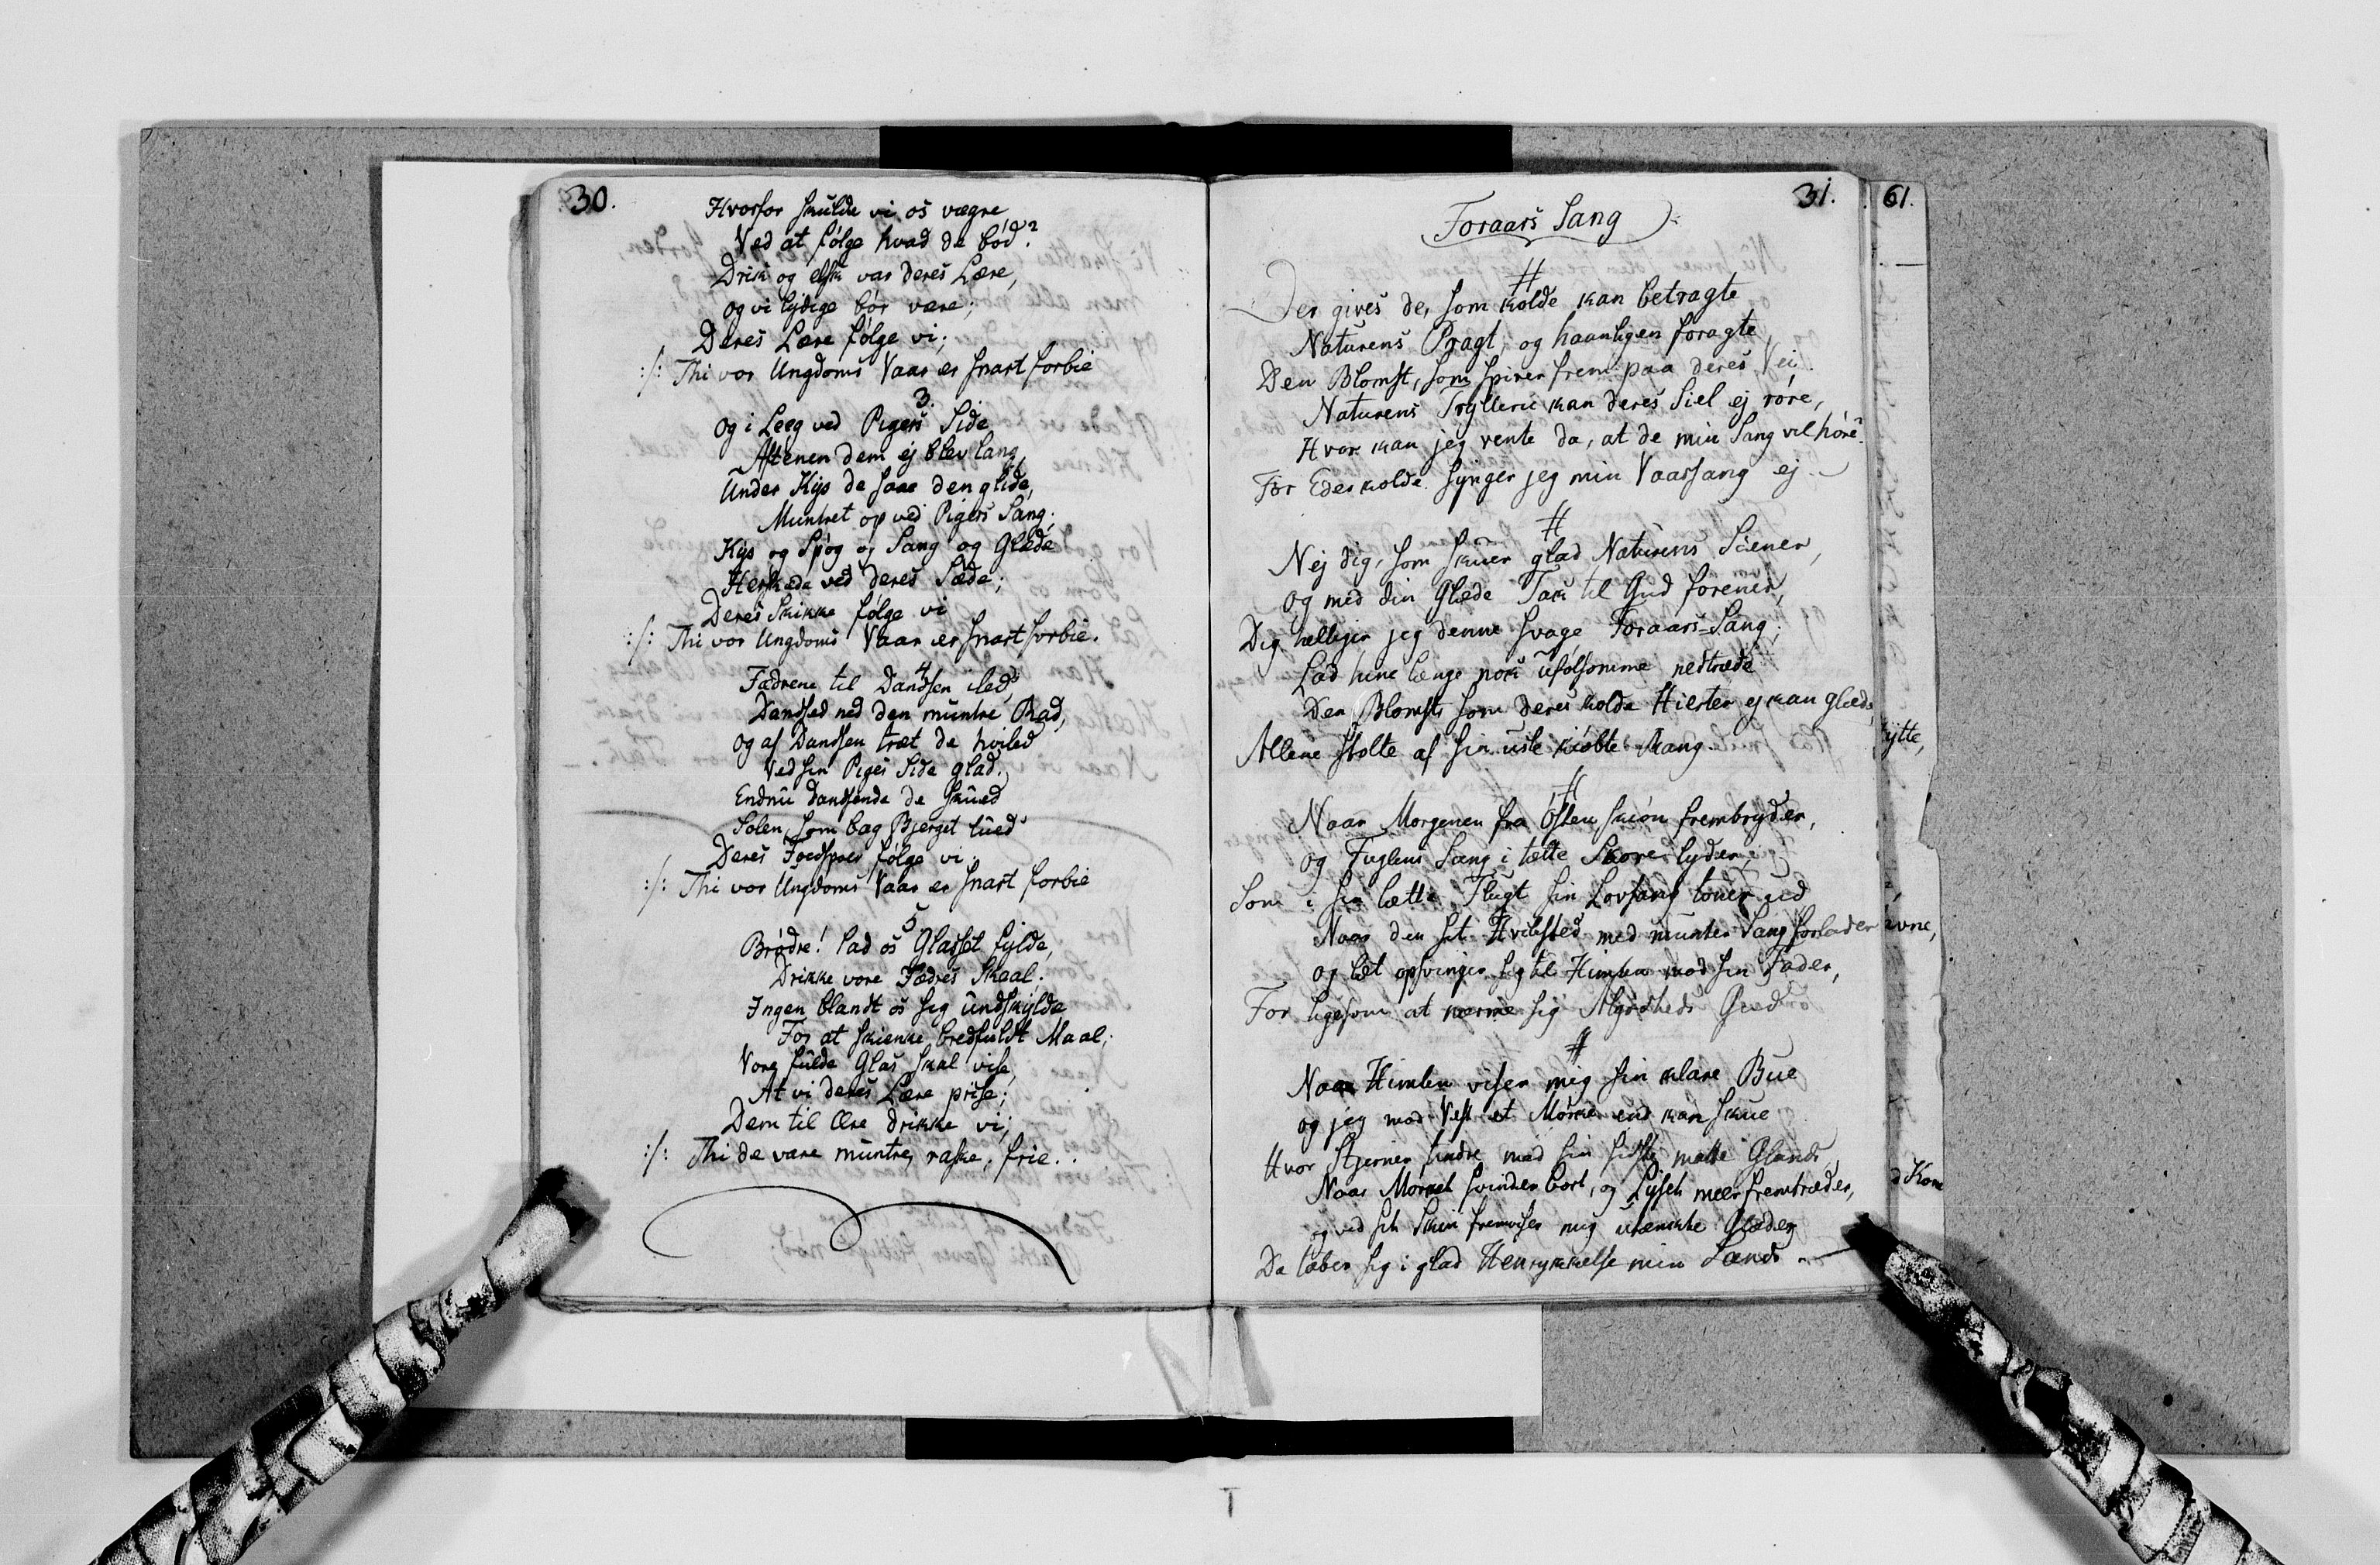 30.
Hvorfor skulde vi os vægre
Ved at følge hvad de bød?
Drik og elsk var deres Lære,
og vi lydige bør være;
Deres Lære følge vi;
:/: Thi vor Ungdoms Vaar er snart forbie
3.
og i Leeg ved Pigers Side
Aftenen dem ej blev lang,
Under Kys de saae den glide,
Muntret op ved Pigers Sang;
Kys og Spøg og Sang og Glæde
Herskede ved deres Sæde;
Deres Skikke følge vi
:/: Thi vor Ungdoms Vaar er snart forbie.
4
Fædrene til Dandsen iled,
Dandsed ned den muntre Rad,
og af Dandsen træt de hviled
Ved sin Piges Side glad.
Endnu dandsende de skued
Solen, som bag Bjerget lued
Deres Foedspoer følge vi
:/: Thi vor Ungdoms Vaar er snart forbie
5
Brødre! lad os Glasset fylde,
Drikke vore Fædres Skaal;
Ingen blandt os sig undskylde
For at skienke bredfuldt Maal;
Vore fulde Glas skal vise,
At vi deres Lære prise;
Dem til Ære drikke vi;
:/: Thi de vare muntre, raske, frie.
31.
Foraars Sang
Der gives de, som kolde kan betragte
Naturens Pragt, og haanligen foragte
Den Blomst, som spirer frem paa deres Vei
Naturens Trylleri kan deres Siel ej røre,
Hvor kan jeg vente da, at de min Sang vil høre?
For Eder kolde synger jeg min Vaarsang ej
Nej dig, som skuer glad Naturens Scener,
og med din Glæde Tak til Gud forener,
Dig helliger jeg denne svage Foraars-Sang;
Lad hine længe nok ufølsomme nedtræde
Den Blomst, som deres kolde Hierter ej kan glæde
Allene stolte af sin usle kiøbte Rang
Naar Morgenen fra Østen skiøn frembryder,
og Fuglens Sang i tætte Skove lyder,
Som i sin lætte Flugt sin Lovsang toner ud
Naar den sit Hvilested med munter Sang forlader
og let opsvinger sig til Himlen mod sin Fader,
For ligesom at nærme sig Algodheds Gud
Naar Himlen viser mig sin klare Bue
og jeg mod Vest et Mørke end kan skue
Hvor Stjernen tindre med sin sidste matte Glands
Naar Mørket svinder bort, og Lyset meer fremtræder,
og ved sit Skin fremviser mig utænkte Glæder
Da taber sig i glad Henrykkelse min Sands
61.
ytte,
d Kom